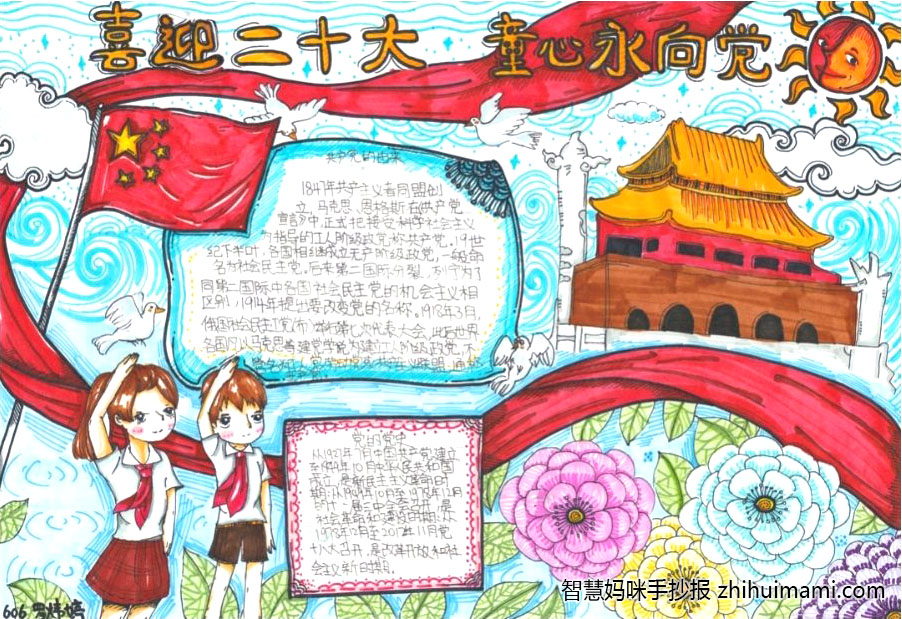 喜迎二十大 童心永向党
共产党的由来
1847年共产主义者同盟创
立,马克思、恩格斯在《共产党
宣言》中,正式把接受科学社会主义
为指导的工人阶级政党称共产党。19世
纪下半叶,各国相继成立无产阶级政党,一般命
名为社会民主党。后来第二国际分裂,列宁为了
同第二国际中各国社会民主党的机会主义相
区别,1914年提出要改变党的名称。1918年3月
俄国社会民主工党(布)举行第七次代表大会,此后世界
各国凡以马克思
建立工人阶级政党,
党的
从1921年7月中国共产党建立
至1949年10月中华人民共和国
成立,是新民主主义革命时
期;从1949年10月至1978年12月
社会革命和建设时期;从
1978年12月至2012年11月党
十八大召开,是改革开放和社
会主义新时期。
606
智慧妈咪手抄报 zhihuimami.com